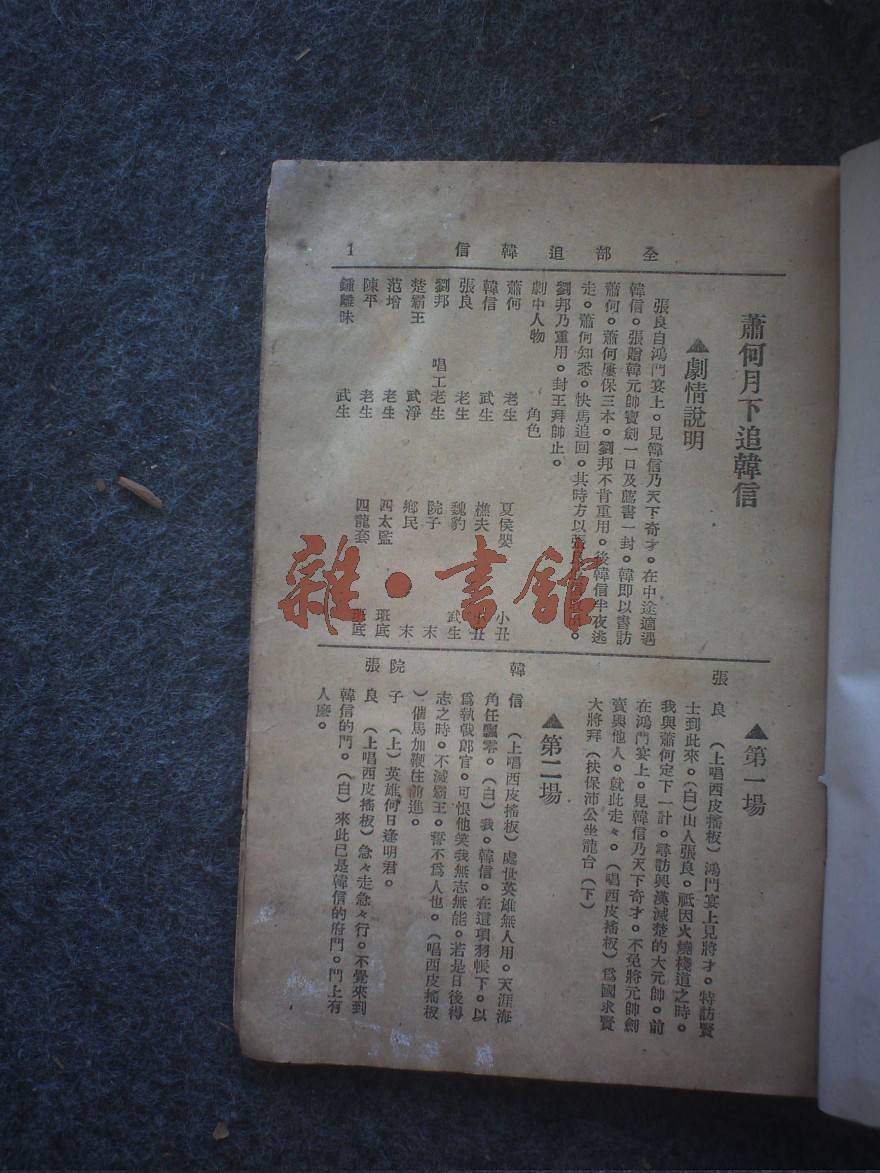 全部追韓信
1
蕭何月下追韓信
▲劇情說明
張良自鴻門宴上。見韓信乃天下奇才。在中途適遇
韓信。張贈韓元帥寶劍一口及薦書一封。韓即以書訪
蕭何。蕭何屢保三本。劉邦不肯重用。後韓信半夜逃
走。蕭何知悉。快馬追回。其時方以張
劉邦乃重用。封王拜帥止。
劇中人物 角色
蕭何 老生 夏侯嬰 小丑
韓信 武生 樵夫 小丑
張良 老生 魏豹 武生
劉邦 唱工老生 院子 末
楚霸王 武淨 鄉民 末
范增 老生 四太監 班底
陳平 老生 四龍套 班底
鍾離昧 武生
▲第一場
張良 (上唱西皮搖板)鴻門宴上見將才。特訪賢
士到此來。(白)山人張良。祇因火燒棧道之時。
我與蕭何定下一計。尋訪興漢滅楚的大元帥。前
在鴻門宴上。見韓信乃天下奇才。不免將元帥劍
賣與他人。就此走々。(唱西皮搖板)爲國求賢
大將拜(扶保沛公坐龍台(下)
▲第二場
韓信 (上唱西皮搖板)處世英雄無人用。天涯海
角任飄零。(白)我。韓信。在這項羽帳下。以
爲執戟郎官。可恨他笑我無志無能。若是日後得
志之時。不滅霸王。誓不爲人也。(唱西皮搖板
)催馬加鞭往前進。
院子 (上)英雄何日逢明君。
張良 (上唱西皮搖板)急々走急々行。不覺來到
韓信的門。(白)來此已是韓信的府門。門上有
人麽。
雜·書館